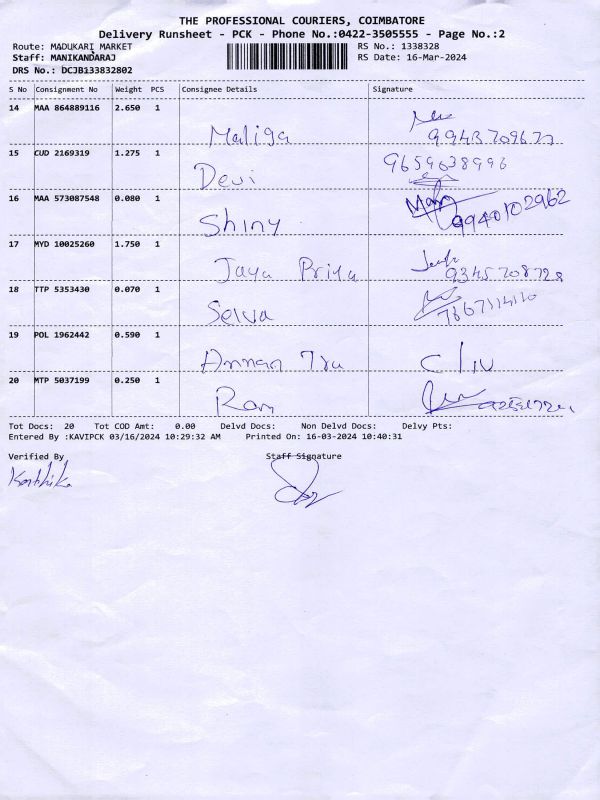 THE PROFESSIONAL COURIERS, COIMBATORE
Delivery Runsheet - PCK - Phone No.:0422-3505555 - Page No.:2
Route: MADUKARI MARKET RS No.: 1338328
Staff: MANIKANDARAJ RS Date: 16-Mar-2024
DRS No.: DCJB133832802
S No Consignment No Weight PCS Consignee Details Signature
14 MAA 864889116 2.650 1
Maliga
15 CUD 2169319 1.275 1 9659638996
Devi
16 MAA 573087548 0.080 1
Shiny 9940102962
17 MYD 10025260 1.750 1
Jaya Priya 9345708728
18 TTP 5353430 0.070 1
Selva
19 POL 1962442 0.590 1
20 MTP 5037199 0.250 1
Ram
Tot Docs: 20 Tot COD Amt: 0.00 Delvd Docs: Non Delvd Docs: Delvy Pts:
Entered By :KAVIPCK 03/16/2024 10:29:32 AM Printed On: 16-03-2024 10:40:31
Verified By Staff Signature
Karthika